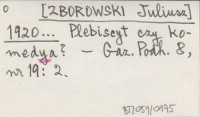 o [ZBOROWSKI Juliusz]
1920... Plebiscyt czy ko-
medya? – Gaz. Podh. 8,
nr 19: 2.
BJ/081/0195